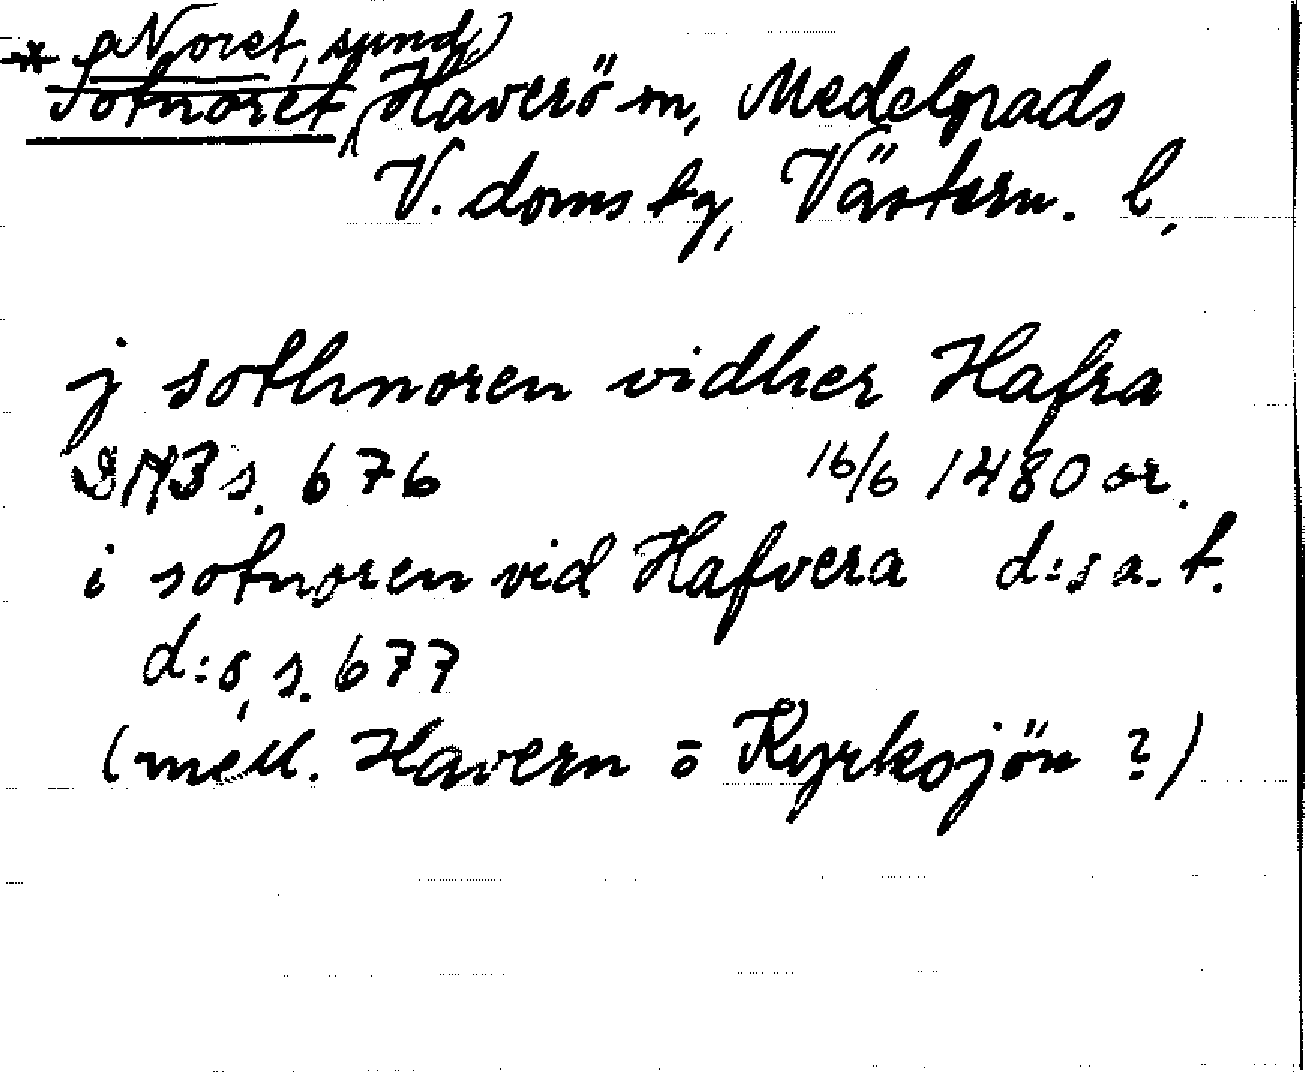 * Noret, sund)
Sotnoret Haverö sn, Medelpads
V. doms fg, Västern. l.
j sothnoren vidher Hafra
DMS s. 676 16/6 1480 or.
i sotnoren vid Hafvera d:s a. f.
d:s, s. 677
(mell. Havern o Kyrksjön ?)